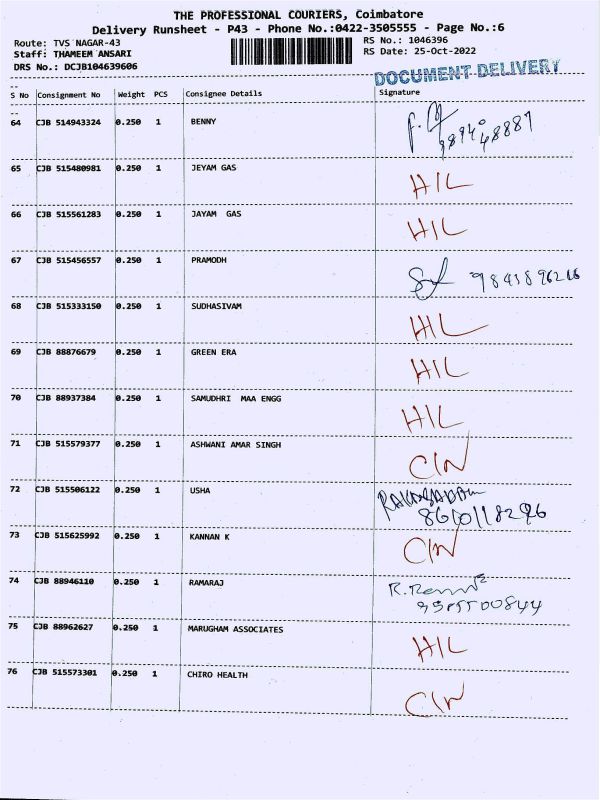 THE PROFESSIONAL COURIERS, Coimbatore
Delivery Runsheet - P43 - Phone No.:0422-3505555 - Page No.:6
Route: TVS NAGAR-43 RS No.: 1046396
Staff: THAMEEM ANSARI RS Date: 25-Oct-2022
DRS No.: DCJB104639606
DOCUMENT DELIVERY
S No Consignment No Weight PCS Consignee Details Signature
64 CJB 514943324 0.250 1 BENNY
65 CJB 515480981 0.250 1 JEYAM GAS H/L
66 CJB 515561283 0.250 1 JAYAM GAS H/L
67 CJB 515456557 0.250 1 PRAMODH
68 CJB 515333150 0.250 1 SUDHASIVAM H/L
69 CJB 88876679 0.250 1 GREEN ERA H/L
70 CJB 88937384 0.250 1 SAMUDHRI MAA ENGG H/L
71 CJB 515579377 0.250 1 ASHWANI AMAR SINGH C/N
72 CJB 515506122 0.250 1 USHA
8610118296
73 CJB 515625992 0.250 1 KANNAN K C/N
74 CJB 88946110 0.250 1 RAMARAJ
75 CJB 88962627 0.250 1 MARUGHAM ASSOCIATES H/L
76 CJB 515573301 0.250 1 CHIRO HEALTH C/N